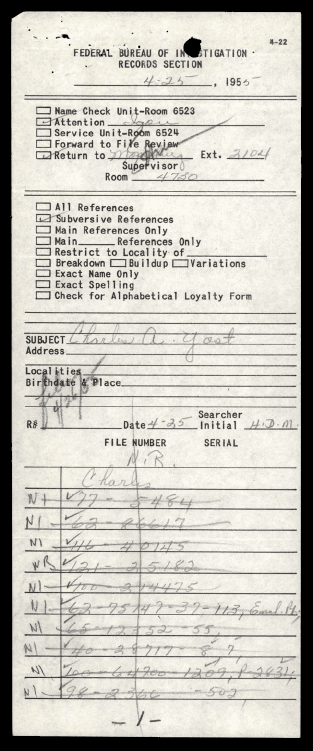 4-22
FEDERAL BUREAU OF INVESTIGATION
RECORDS SECTION
4-25, 1955
Name Check Unit-Room 6523
Attention
Service Unit-Room 6524
Forward to File Review
Return to Ext. 2104
Supervisor
Room 4730
All References
Subversive References
Main References Only
Main References Only
Restrict to Locality of
Breakdown Buildup Variations
Exact Name Only
Exact Spelling
Check for Alphabetical Loyalty Form
SUBJECT Charles A. Yost
Address
Localities
Birthdate & Place
R# Date 4-25 Searcher Initial H.D.M.
FILE NUMBER SERIAL
N.R.
Charles
NI 77 - 5484
NI 62 - 26617
NI 116 - 40145
NR 121 - 25182
NI 100 - 214475
NI 62-75147-37-113, Encl. P1,
NI 65-12-52-55,
NI 40-28717-87,
NI 100-64700-1209, P-2834,
NI 98-2566-502
-1-